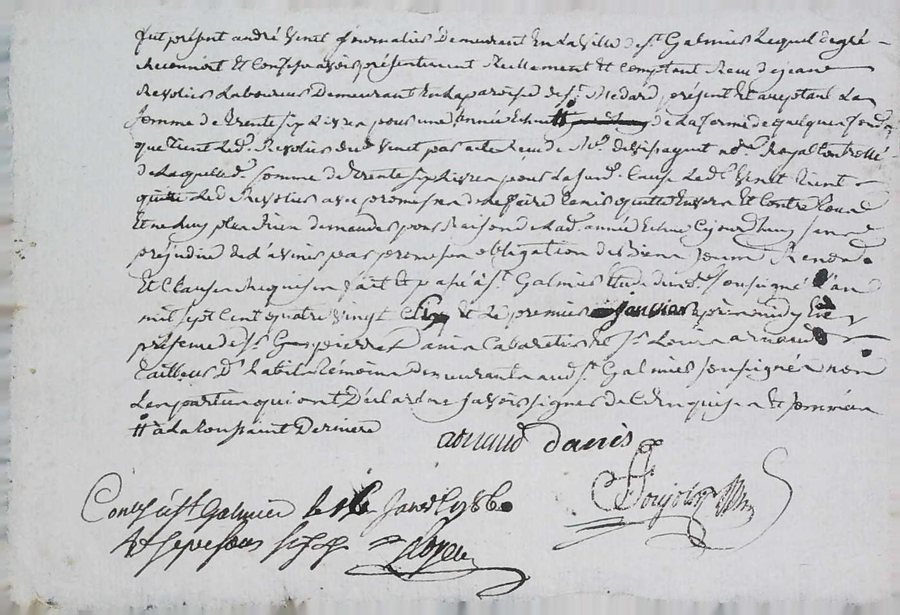 fut présent andré Vinet journalier Demeurant En La Ville de st. Galmier Lequel de gré
Reconnoit Et Confesse avoir présentement Reellement Et Comptant Receu de jean
Revolier Laboureur Demeurant En La paroisse de st. Medard, présent Et acceptant La
somme de Trente sept Livres pour une année Echue # de La ferme de quelques fonds
que Tient Led. Revolier dud. Vinet par acte Receu de Me. notre. Royal Controllé
de Laquelle somme de Trente sept Livres pour La susd. Cause Led. Vinet Tient
quitte Led. Revolier avec promesse de Le faire Tenir quitte Envers Et Contre Tous
Et ne Luy plus Rien demander pour Raison de Lad. année Echue Cejourdhuy sans
préjudice de par promesse obligation de Biens soum. Renon.
Et Clauses Requises fait Et passé à st. Galmier Etude du nore. soussigné L'an
mil sept Cent quatre vingt six Et Le premier janvier après midy En
présence de sr. pierre Danis Cabaretier Et sr. Louis arnaud
Tailleur D'habits Témoins Demeurants aud. st. Galmier soussignés non
Les parties qui ont Déclaré ne savoir signer de Ce Enquises Et sommées
# à la Toussaint Derniere
arnaud danis
Conlé à st Galmier le janv. 1786
Rt sept sous six